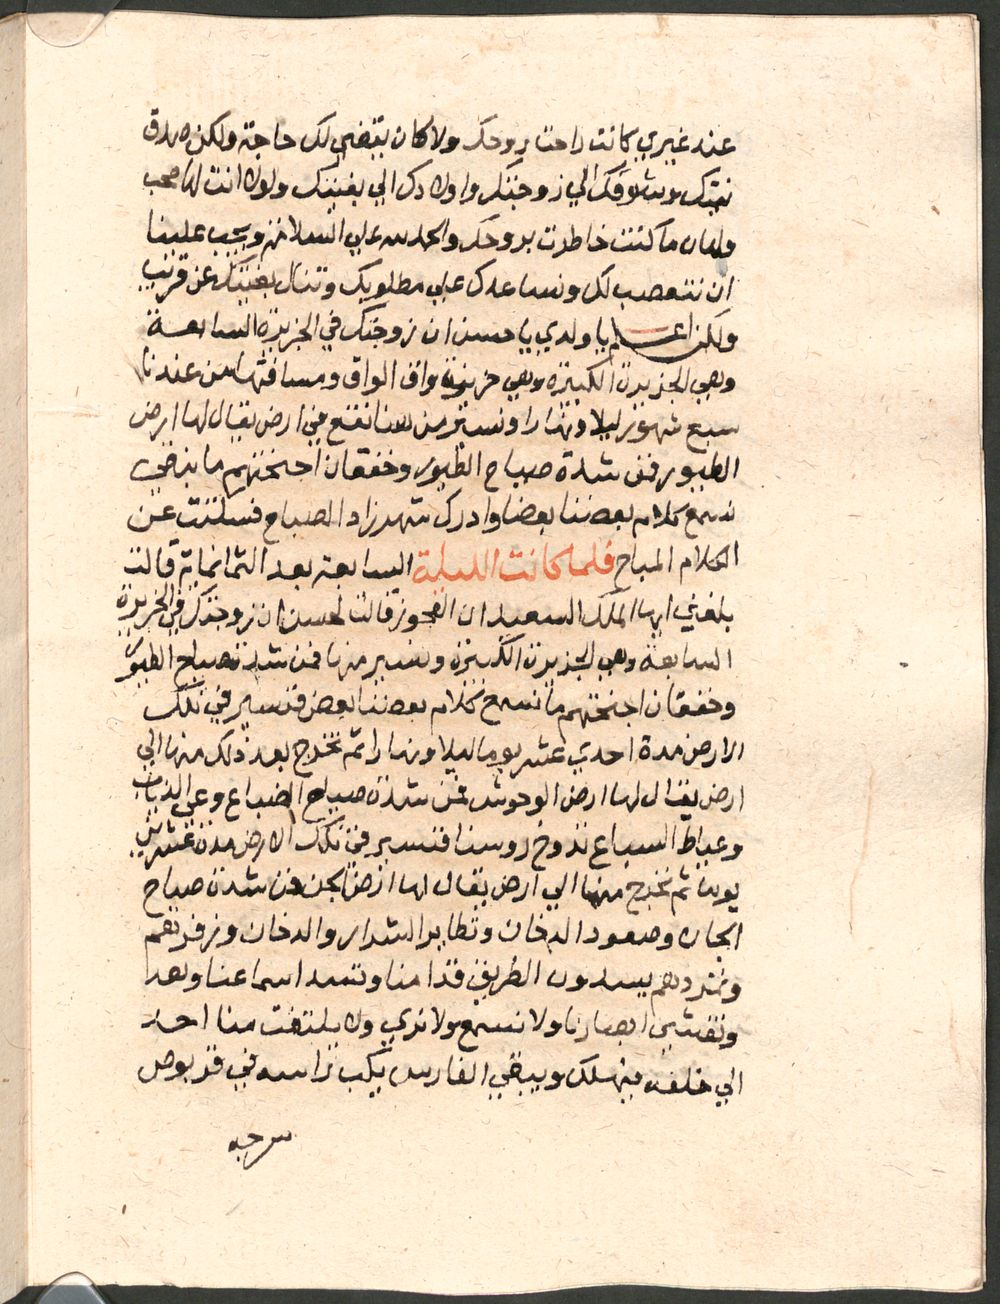 عند غيري كانت راحت روحك ولا كان يتقضي لك حاجة ولكن صدق
نيتك وبتشوقك الي زوجتك واولادك الي بغيتك ولولا انت لها محب
ولهان ما كنت خاطرت بروحك والحمد لله علي السلامة ويجب علينا
ان نتعصب لك ونساعدك علي مطلوبك وتنال بغيتك عن قريب
ولكن اعلم يا ولدي يا حسن ان زوجتك في الجزيرة السابعة
وهي الجزيرة الكبيرة وهي جزيرة واق الواق ومسافتها من عندنا
سبع شهور ليلا ونهارا ونسير من هنا نقع في ارض يقال لها ارض
الطيور فمن شدة صياح الطيور وخفقان اجنحتهم ما بنقي
نسمع كلام بعضنا بعضا وادرك شهرزاد الصباح فسكتت عن
الكلام المباح فلما كانت الليلة السابعة بعد الثمانماية قالت
بلغني ايها الملك السعيد ان العجوز قالت لحسن ان زوجتك في الجزيرة
السابعة وهي الجزيرة الكبيرة ونسير منها فمن شدة صياح الطيور
وخفقان اجنحتهم ما نسمع كلام بعضنا بعض فنسير في تلك
الارض مدة احدي عشر يوما ليلا ونهارا ثم نخرج بعد ذلك منها الي
ارض يقال لها ارض الوحوش فمن شدة صياح الضباع وعي الذياب
وعياط السباع تدوخ روسنا فنسير في تلك الارض مدة عشرين
يوما ثم نخرج منها الي ارض يقال لها ارض الجن فمن شدة صياح
الجان وصعود الدخان وتطاير الشرار والدخان وزفرتهم
وتمردهم يسدون الطريق قدامنا وتنسد اسماعنا وبعد
وتغشي ابصارنا ولا نسمع ولا نري ولا يلتفت منا احد
الي خلفه ينهلك ويبقي الفارس يكب راسه في قربوص
سرجه